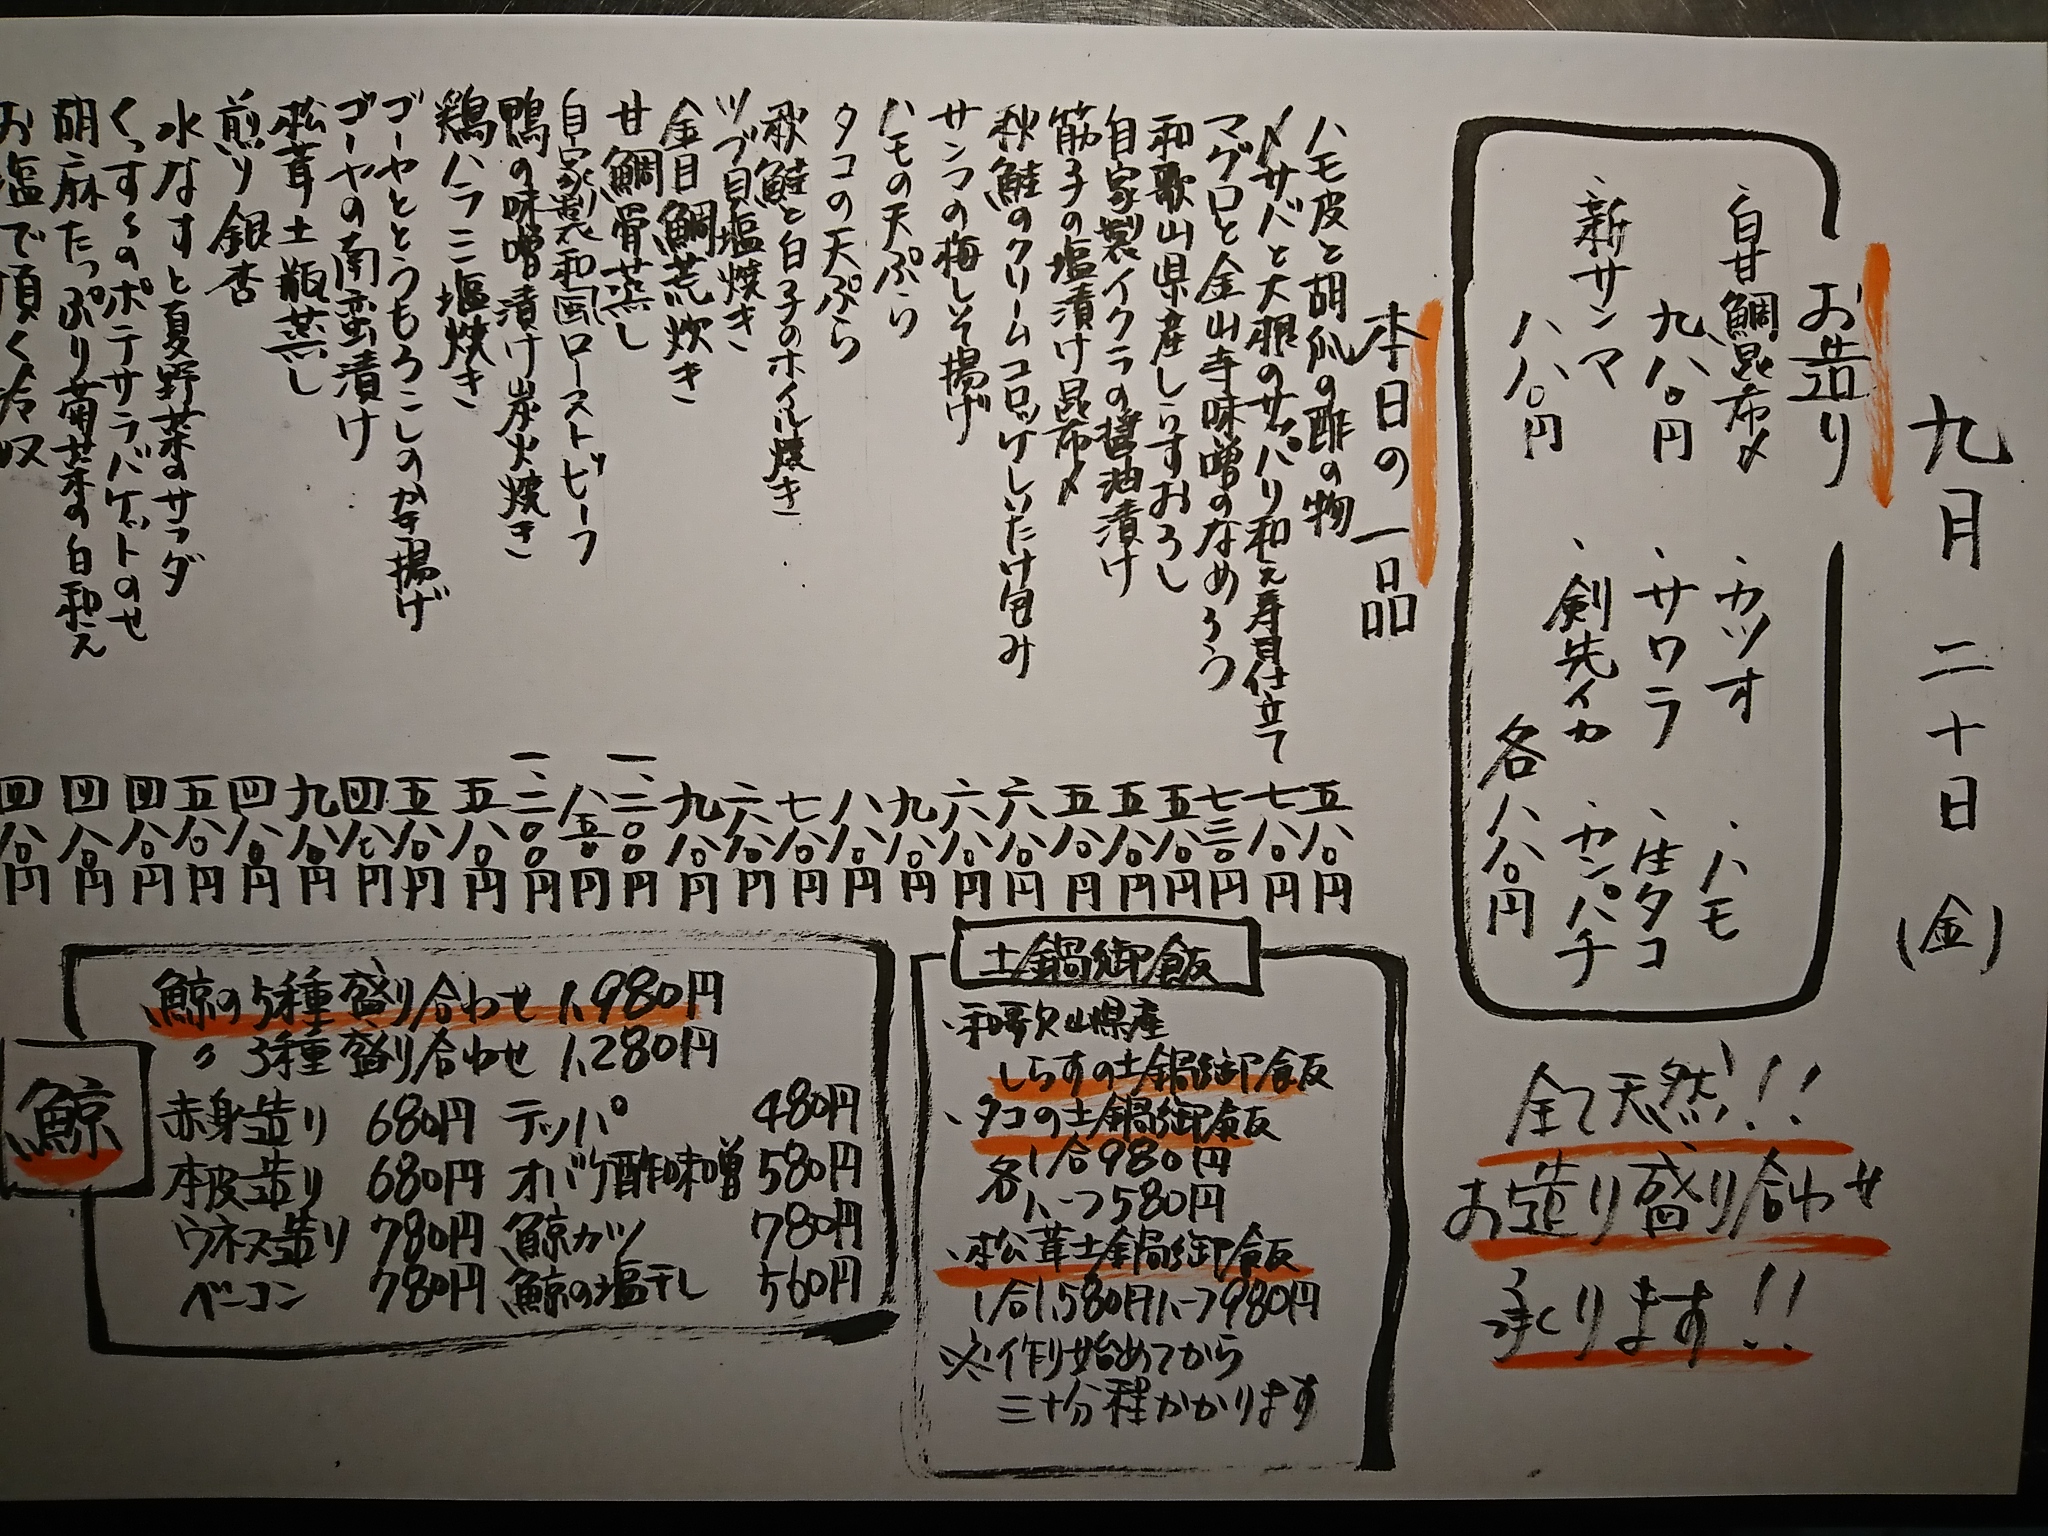 九月二十日(金)
お造り
・白甘鯛昆布〆
九八〇円
・新サンマ
八八〇円
・カツオ
・ハモ
・サワラ
・生タコ
・剣先イカ
・カンパチ
各八八〇円
全て天然!!
お造り盛り合わせ
承ります!!
本日の一品
ハモ皮と胡瓜の酢の物 五八〇円
〆サバと大根のサッパリ和え寿司仕立て 七八〇円
マグロと金山寺味噌のなめろう 七三〇円
和歌山県産しらすおろし 五八〇円
自家製イクラの醤油漬け 五八〇円
筋子の塩漬け昆布〆 五八〇円
秋鮭のクリームコロッケしいたけ包み 六八〇円
サンマの梅しそ揚げ 六八〇円
ハモの天ぷら 九八〇円
タコの天ぷら 八八〇円
秋鮭と白子のホイル焼き 七八〇円
ツブ貝塩焼き 六八〇円
金目鯛荒炊き 九八〇円
甘鯛骨蒸し 一、二〇〇円
自家製和風ローストビーフ 八五〇円
鴨の味噌漬け炭火焼き 一、二〇〇円
鶏ハラミ塩焼き 五八〇円
ゴーヤとうもろこしのかき揚げ 五八〇円
ゴーヤの南蛮漬け 四八〇円
松茸土瓶蒸し 九八〇円
煎り銀杏 四八〇円
水なすと夏野菜のサラダ 五八〇円
くっすくのポテサラバケットのせ 四八〇円
胡麻たっぷり菊菜の白和え 四八〇円
お塩で頂く冷奴 四八〇円
土鍋御飯
・和歌山県産
しらすの土鍋御飯
・タコの土鍋御飯
各1合980円
ハーフ580円
・松茸土鍋御飯
1合1,580円ハーフ980円
※作り始めてから
三十分程かかります
鯨
鯨の5種盛り合わせ 1,980円
〃 3種盛り合わせ 1,280円
赤身造り 680円 テッパ 480円
本皮造り 680円 オバケ酢味噌 580円
ウネス造り 780円 鯨カツ 780円
ベーコン 780円 鯨の塩干し 560円